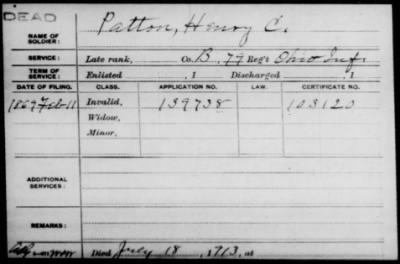 DEAD
NAME OF SOLDIER: Patton, Henry C.
SERVICE: Late rank, Co. B, 79 Reg't Ohio Inf.
TERM OF SERVICE: Enlisted , 1 Discharged , 1
DATE OF FILING. CLASS. APPLICATION NO. LAW. CERTIFICATE NO.
1869 Feb 11 Invalid, 139738 103120
Widow,
Minor,
ADDITIONAL SERVICES:
REMARKS:
Died July 18, 1913, at